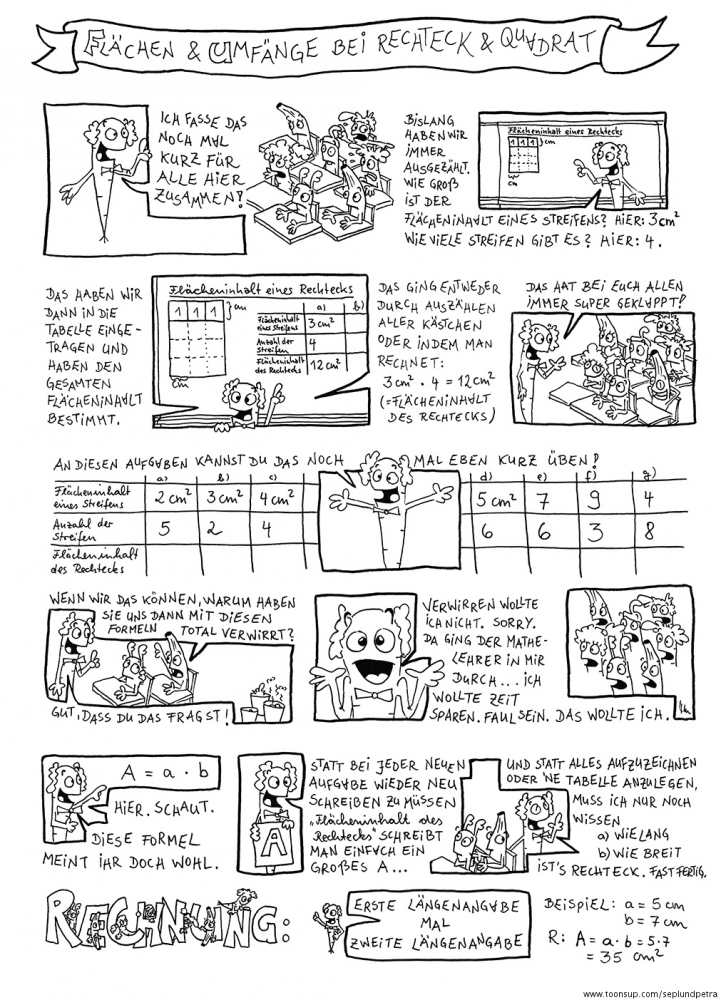 FLÄCHEN & UMFÄNGE BEI RECHTECK & QUADRAT
ICH FASSE DAS
NOCH MAL
KURZ FÜR
ALLE HIER
ZUSAMMEN!
BISLANG
HABEN WIR
IMMER
AUSGEZÄHLT.
WIE GROß
IST DER
FLÄCHENINHALT EINES STREIFENS? HIER: 3 cm²
WIE VIELE STREIFEN GIBT ES? HIER: 4.
Flächeninhalt eines Rechtecks
1 1 1 }cm
cm
DAS HABEN WIR
DANN IN DIE
TABELLE EINGE-
TRAGEN UND
HABEN DEN
GESAMTEN
FLÄCHENINHALT
BESTIMMT.
Flächeninhalt eines Rechtecks
1 1 1 }cm
cm
a) b)
Flächeninhalt eines Streifens 3 cm²
Anzahl der Streifen 4
Flächeninhalt des Rechtecks 12 cm²
DAS GING ENTWEDER
DURCH AUSZÄHLEN
ALLER KÄSTCHEN
ODER INDEM MAN
RECHNET:
3 cm² · 4 = 12 cm²
(=FLÄCHENINHALT
DES RECHTECKS)
DAS HAT BEI EUCH ALLEN
IMMER SUPER GEKLAPPT!
AN DIESEN AUFGABEN KANNST DU DAS NOCH MAL EBEN KURZ ÜBEN!
a) b) c) d) e) f) g)
Flächeninhalt eines Streifens 2 cm² 3 cm² 4 cm² 5 cm² 7 9 4
Anzahl der Streifen 5 2 4 6 6 3 8
Flächeninhalt des Rechtecks
WENN WIR DAS KÖNNEN, WARUM HABEN
SIE UNS DANN MIT DIESEN
FORMELN TOTAL VERWIRRT?
GUT, DASS DU DAS FRAGST!
VERWIRREN WOLLTE
ICH NICHT. SORRY.
DA GING DER MATHE-
LEHRER IN MIR
DURCH... ICH
WOLLTE ZEIT
SPAREN. FAUL SEIN. DAS WOLLTE ICH.
A = a · b
HIER. SCHAUT.
DIESE FORMEL
MEINT IHR DOCH WOHL.
A
STATT BEI JEDER NEUEN
AUFGABE WIEDER NEU
SCHREIBEN ZU MÜSSEN
„Flächeninhalt des
Rechtecks“ SCHREIBT
MAN EINFACH EIN
GROßES A...
UND STATT ALLES AUFZUZEICHNEN
ODER 'NE TABELLE ANZULEGEN,
MUSS ICH NUR NOCH
WISSEN
a) WIE LANG
b) WIE BREIT
IST'S RECHTECK. FAST FERTIG.
RECHNUNG:
ERSTE LÄNGENANGABE
MAL
ZWEITE LÄNGENANGABE
BEISPIEL: a = 5 cm
b = 7 cm
R: A = a · b = 5 · 7
= 35 cm²
www.toonsup.com/seplundpetra